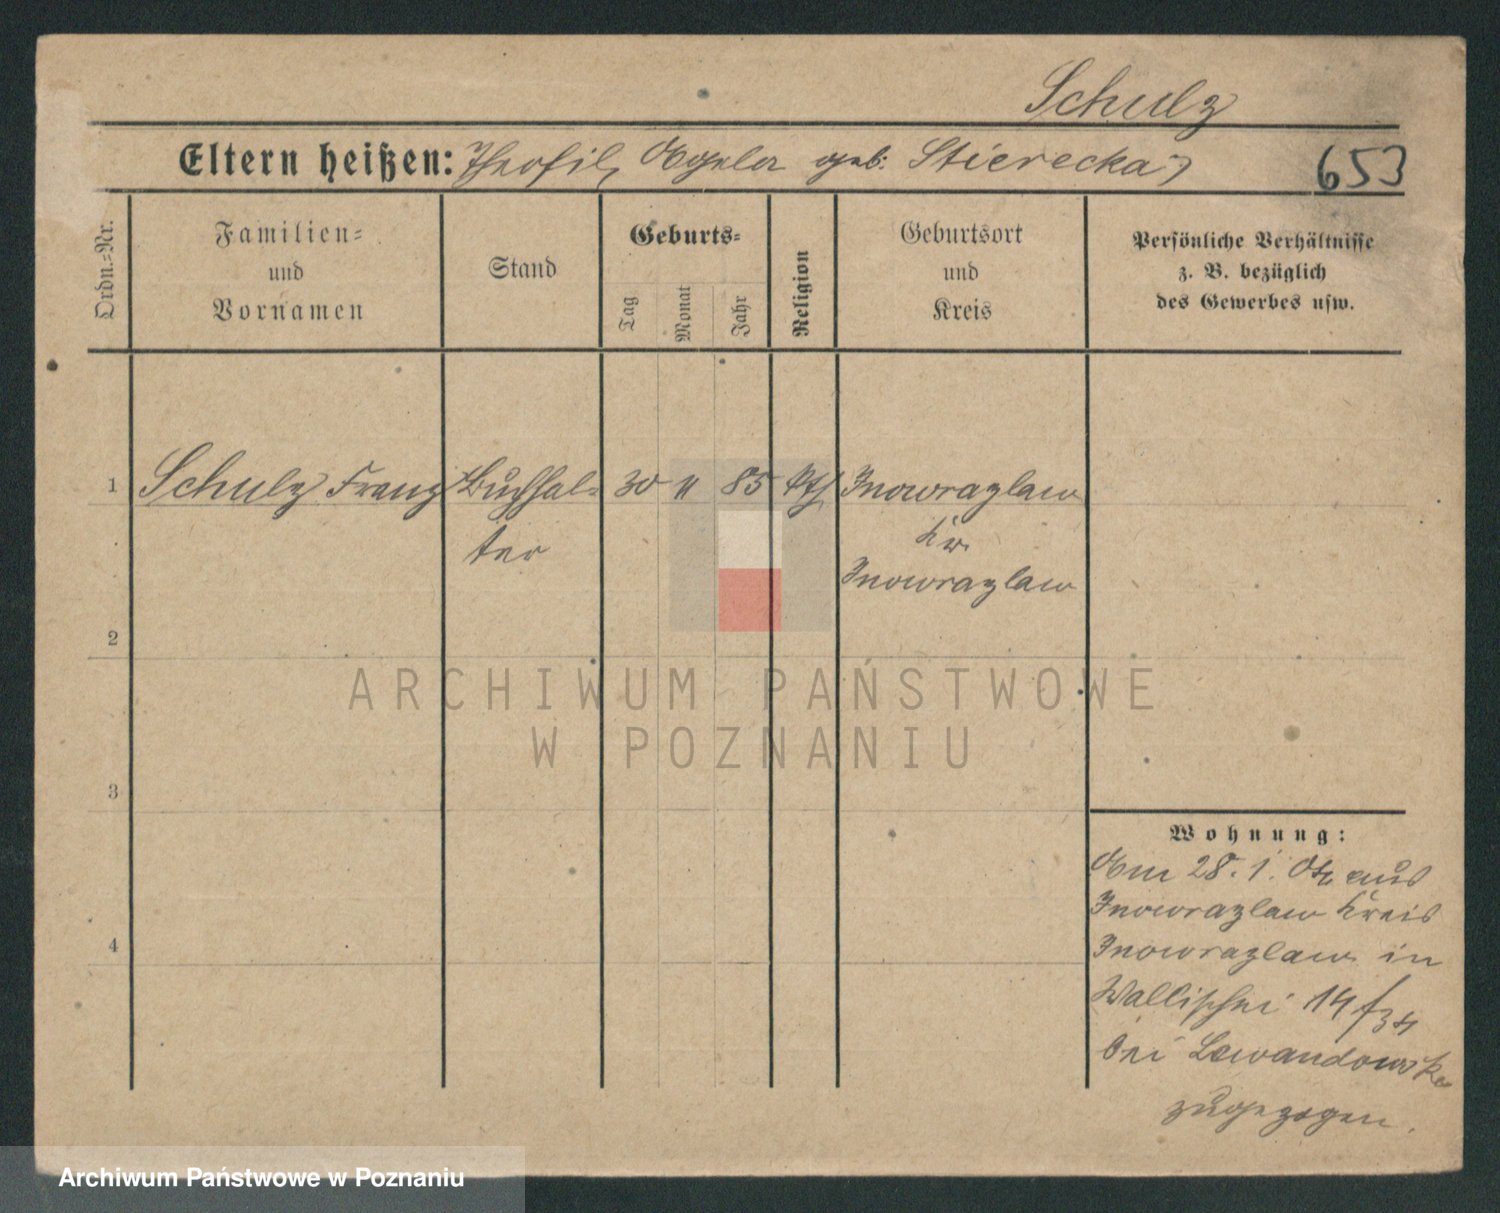 Schulz
Eltern heißen: Theofil, geb: Stierecka
653
Ordn.-Nr.
Familien- und Vornamen
Stand
Geburts-
Tag
Monat
Jahr
Religion
Geburtsort und Kreis
Persönliche Verhältnisse
z. B. bezüglich
des Gewerbes usw.
1 Schulz Franz Buchhal- 30 85 kth Inowrazlaw
ter Kr.
Inowrazlaw
2
3
4
Wohnung:
Am 28. 1. aus
Inowrazlaw Kreis
Inowrazlaw in
Wallischei 14
bei Lewandowska
zugezogen.
ARCHIWUM PAŃSTWOWE
W POZNANIU
Archiwum Państwowe w Poznaniu